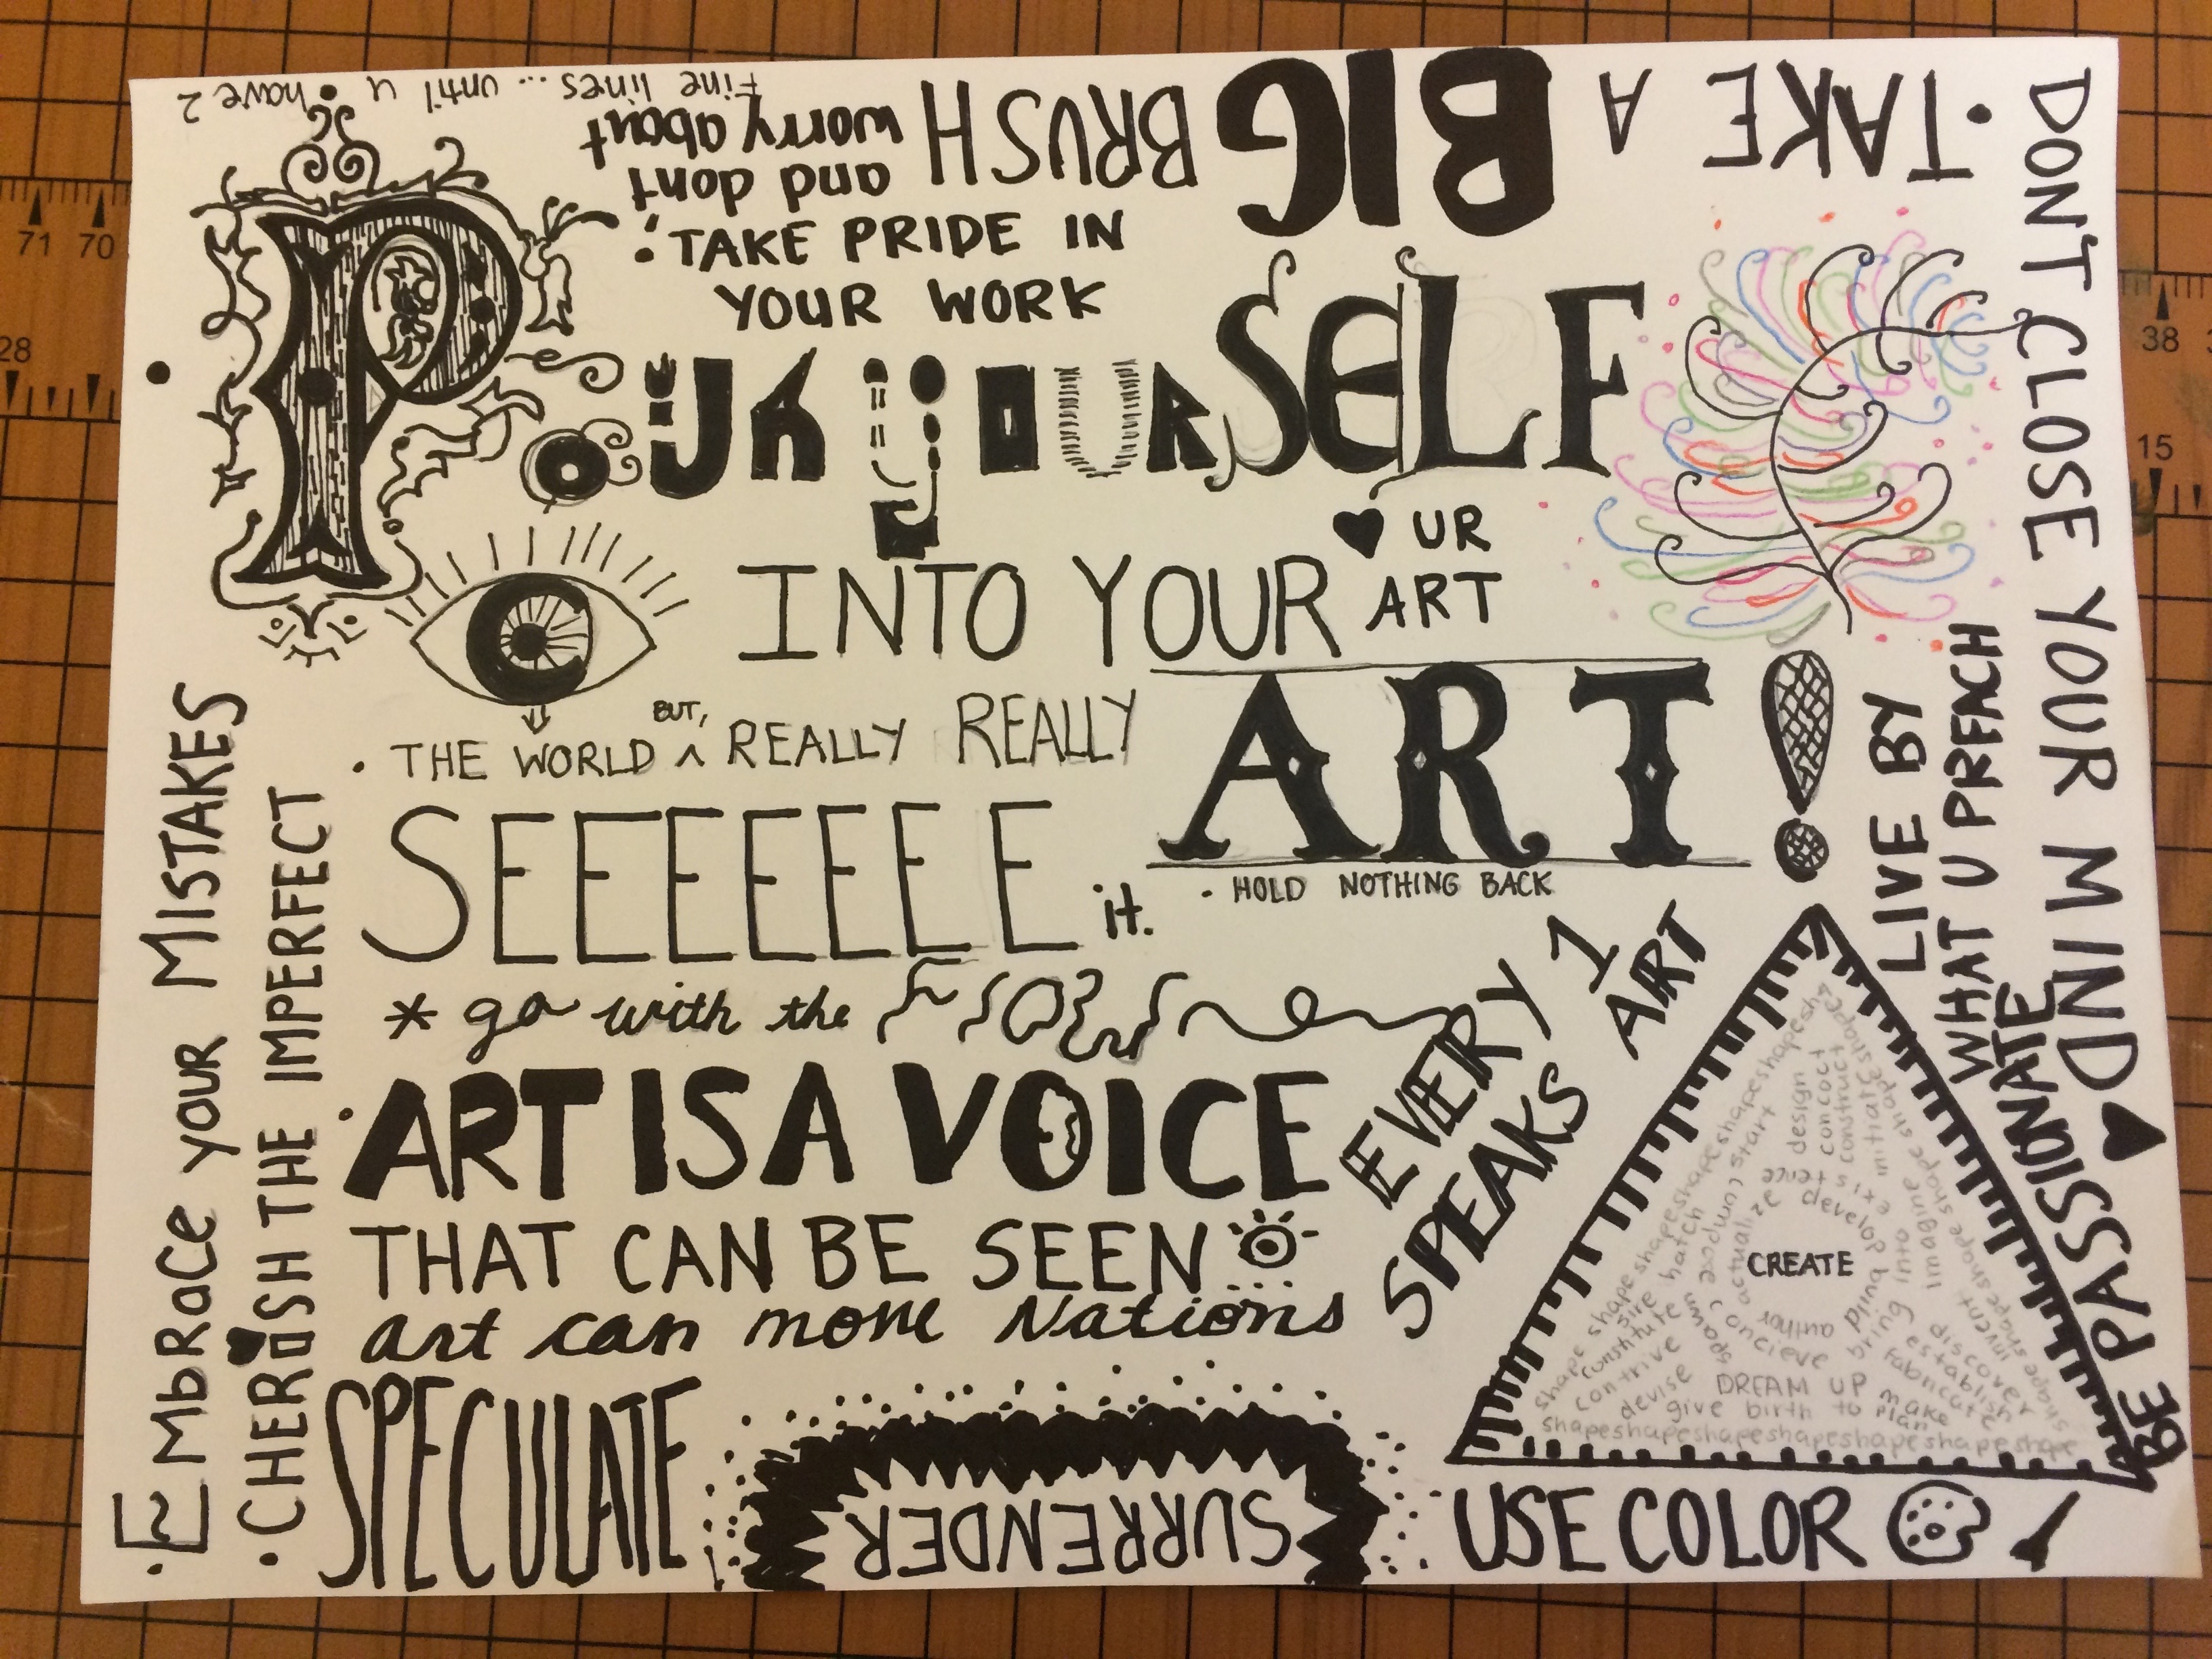 • TAKE A BIG BRUSH
and dont
worry about
Fine lines... until u have 2
DON'T CLOSE YOUR MIND
• TAKE PRIDE IN
YOUR WORK
POUR YOURSELF
INTO YOUR
ART!
♥ UR
ART
• HOLD NOTHING BACK
• THE WORLD BUT, ^ REALLY REALLY
SEEEEEEE it.
* go with the FLOW
• ART IS A VOICE
THAT CAN BE SEEN
art can move Nations
SPECULATE
SURRENDER
USE COLOR
EVERY 1
SPEAKS ART
LIVE BY
WHAT U PREACH
BE PASSIONATE
• EMbRaCe yOUR MISTAKES
• CHERISH THE IMPERFECT
shapeshapeshapeshapeshapeshapeshapeshape
design
concoct
construct
initiate
start
existence
hatch
compose
actualize
develop
CREATE
sire
constitute
spawn
conceive
author
build
bring into
imagine
contrive
devise
discover
invent
establish
fabricate
DREAM UP
make
give birth to
plan
71 70
28
38
15